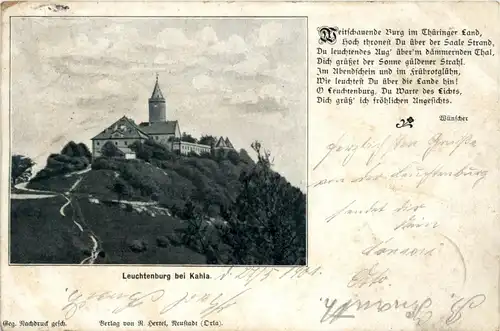 Weitschauende Burg im Thüringer Land,
Hoch thronest Du über der Saale Strand,
Du leuchtendes Aug' über'm dämmernden Thal,
Dich grüßet der Sonne güldener Strahl.
Im Abendschein und im Frührotglühn,
Wie leuchtest Du über die Lande hin!
O Leuchtenburg, Du Warte des Lichts,
Dich grüß' ich fröhlichen Angesichts.
Wünscher
Herzlichsten Grüße
von der Leuchtenburg
sendet Dir
Dein
Leuchtenburg bei Kahla.
Geg. Nachdruck gesch.
Verlag von R. Hertel, Neustadt (Orla).